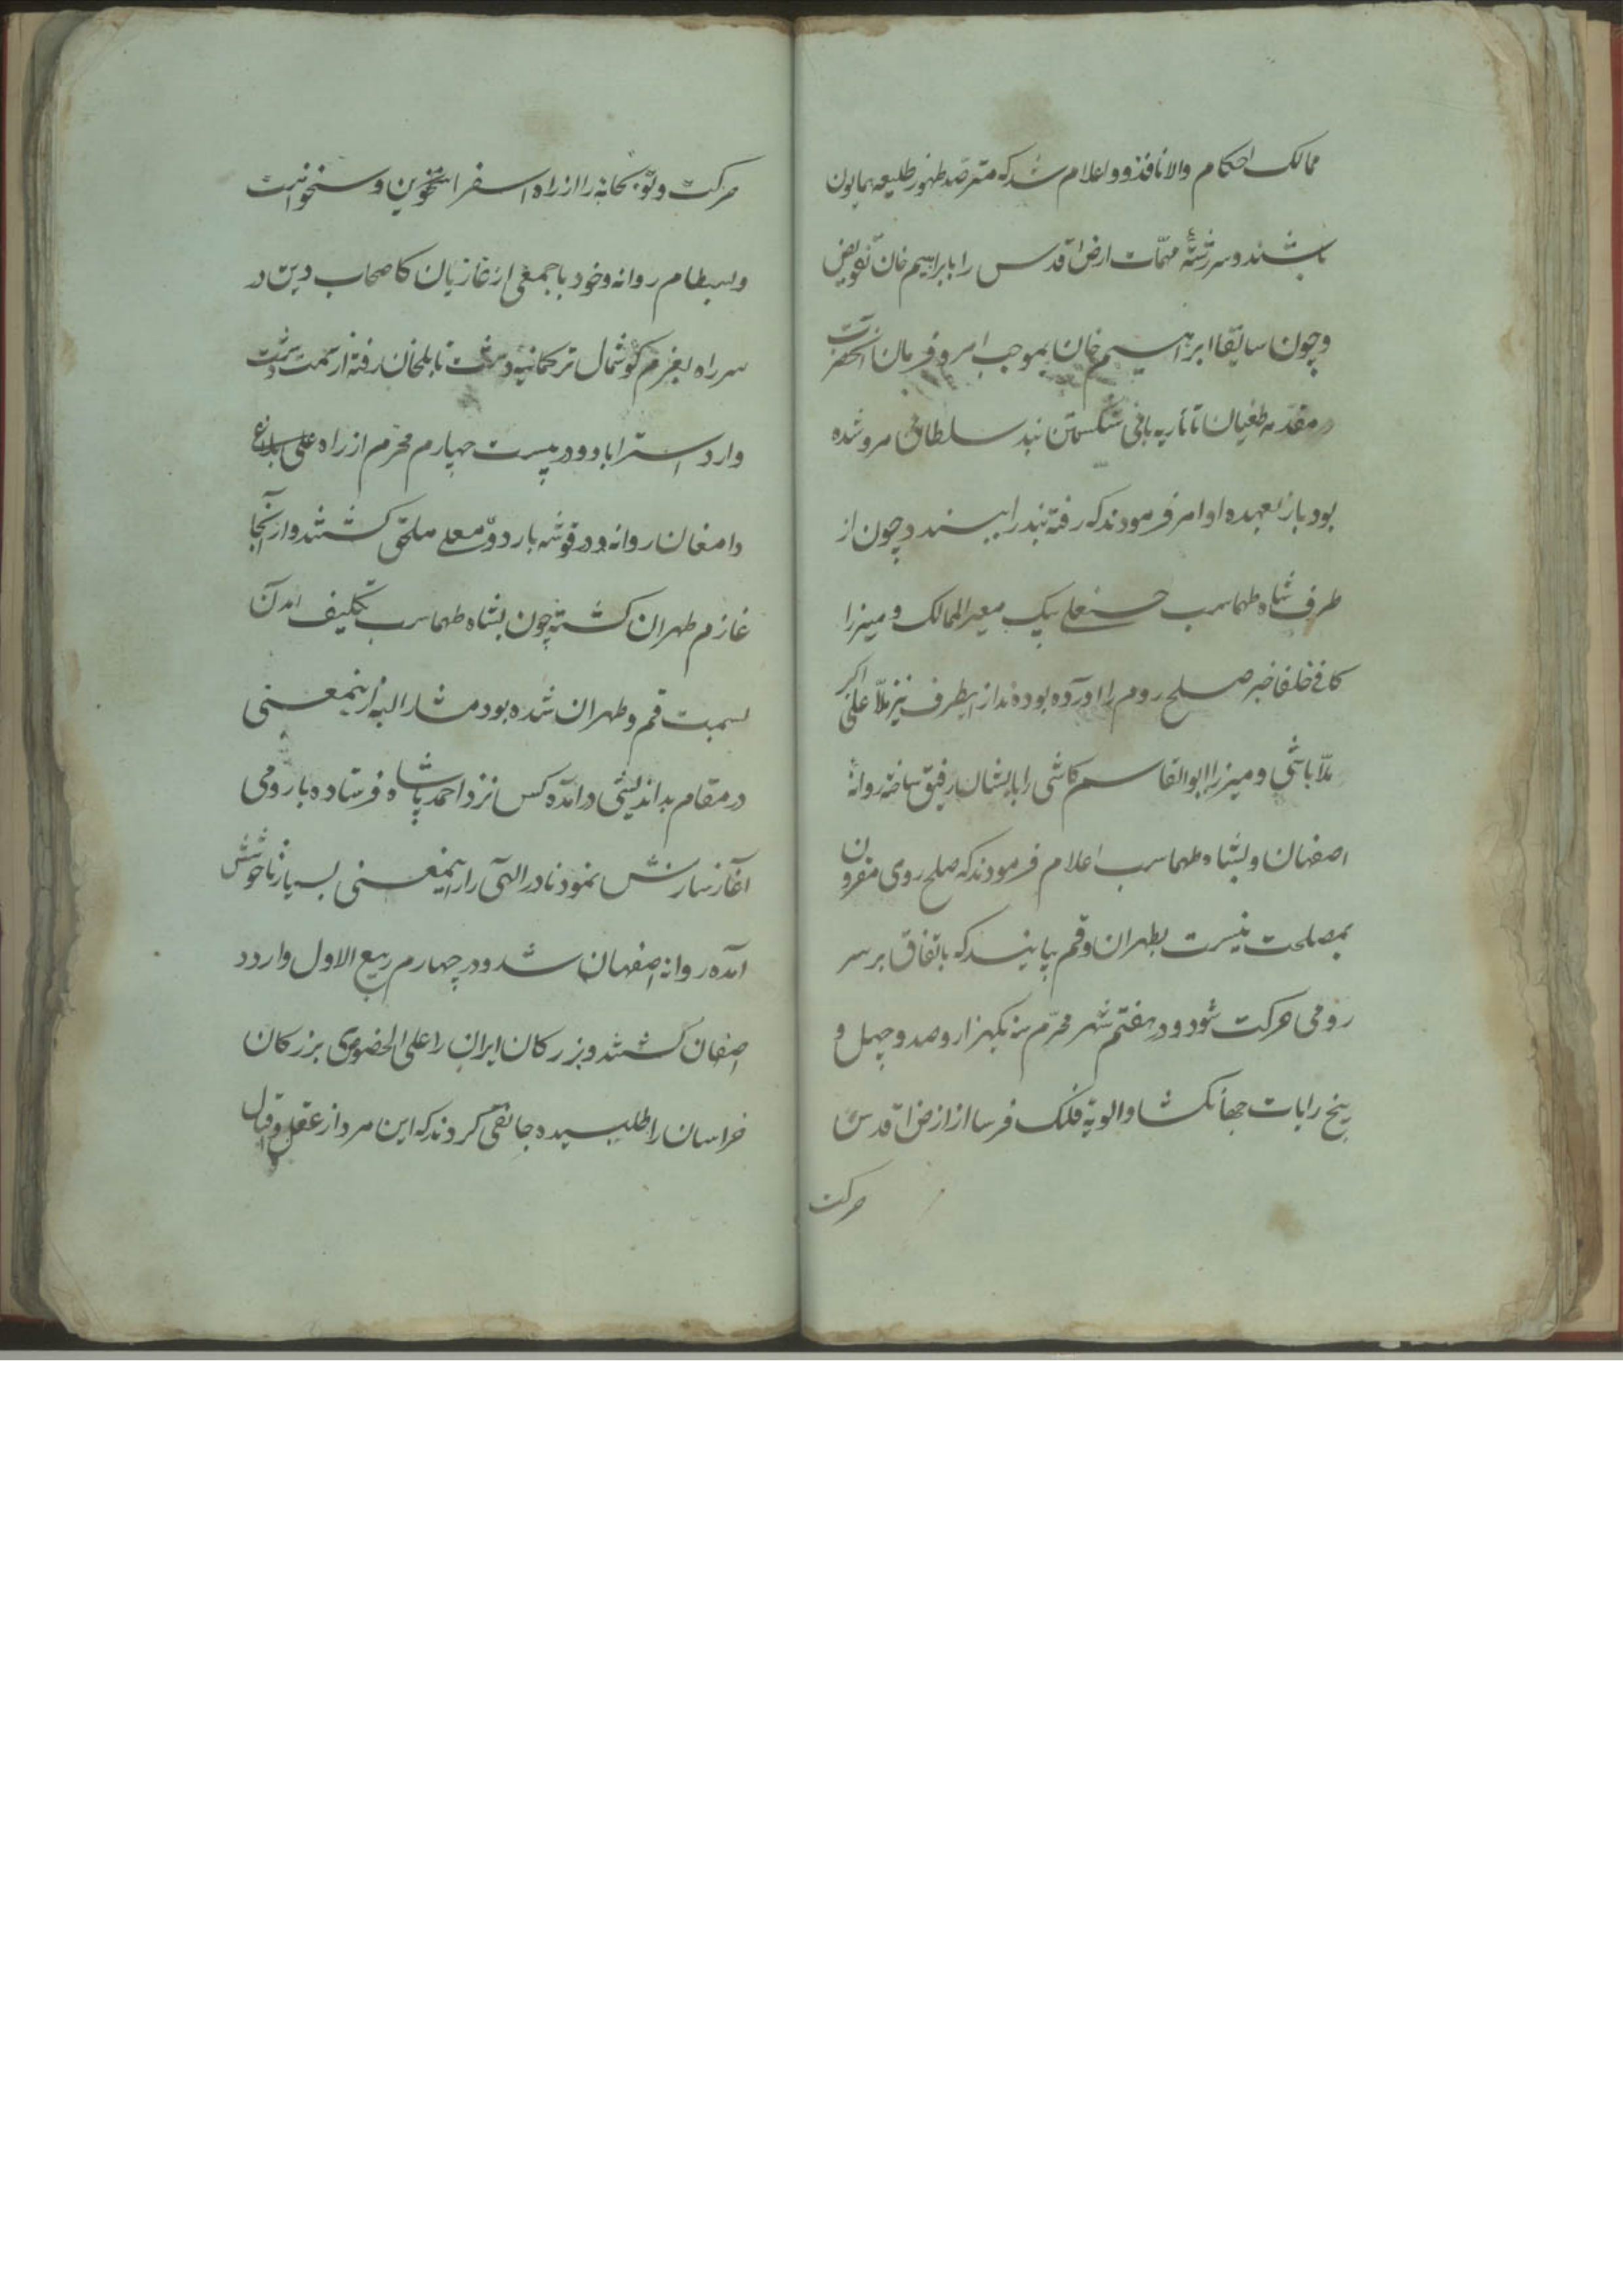 ممالک احکام والا نافذ و اعلام شد که مترصد ظهور طلیعه همایون
باشند و سررشتهٔ مهمّات ارض اقدس را بابراهیم خان تفویض
و چون سابقا ابراهیم خان بموجب امر و فرمان آنحضرت
در مقدمه طغیان تاتاریه باقی شکستن بند سلطان مرو شده
بود باز بعهده او امر فرمودند که رفته بند را ببندد چون از
طرف شاه طهماسب حسنعلی بیک معیر الممالک و میرزا
کافی خلفا خبر صلح روم را آورده بودند از اینطرف نیز ملّا علی اکبر
ملّا باشی و میرزا ابوالقاسم کاشی را بایشان رفیق ساخته روانهٔ
اصفهان و بشاه طهماسب اعلام فرمودند که صلح روی مقرون
بمصلحت نیست بطهران و قم بیایند که باتفاق بر سر
رومی حرکت شود و در هفتم شهر محرّم سنه یکهزار و صد و چهل و
پنج رایات جهانگشا و الویه فلک فرسا از ارض اقدس
حرکت
حرکت و توپخانه را از راه اسفراین و سنخواست
و بسطام روانه و خود با جمعی از غازیان کاصحاب دین در
سر راه بعزم گوشمال ترکمانیه دشت تا بلخان رفته از سمت دشت
وارد استراباد و در بیست چهارم محرم از راه علی بلاغ
دامغان روانه و در قوشه باردوی معلی ملحق گشتند و از آنجا
عازم طهران گشته چون بشاه طهماسب تکلیف آمدن
بسمت قم و طهران شده بود مشار الیه از اینمعنی
در مقام بداندیشی درآمده کس نزد احمد پاشاه فرستاده با رومی
آغاز سازش نمود نادر الهی را از اینمعنی بسیار ناخوش
آمده روانه اصفهان شد و در چهارم ربیع الاول وارد
اصفهان گشتند و بزرگان ایران را علی الخصوص بزرگان
خراسان را طلبیده جانقی کردند که این مرد از عقل و